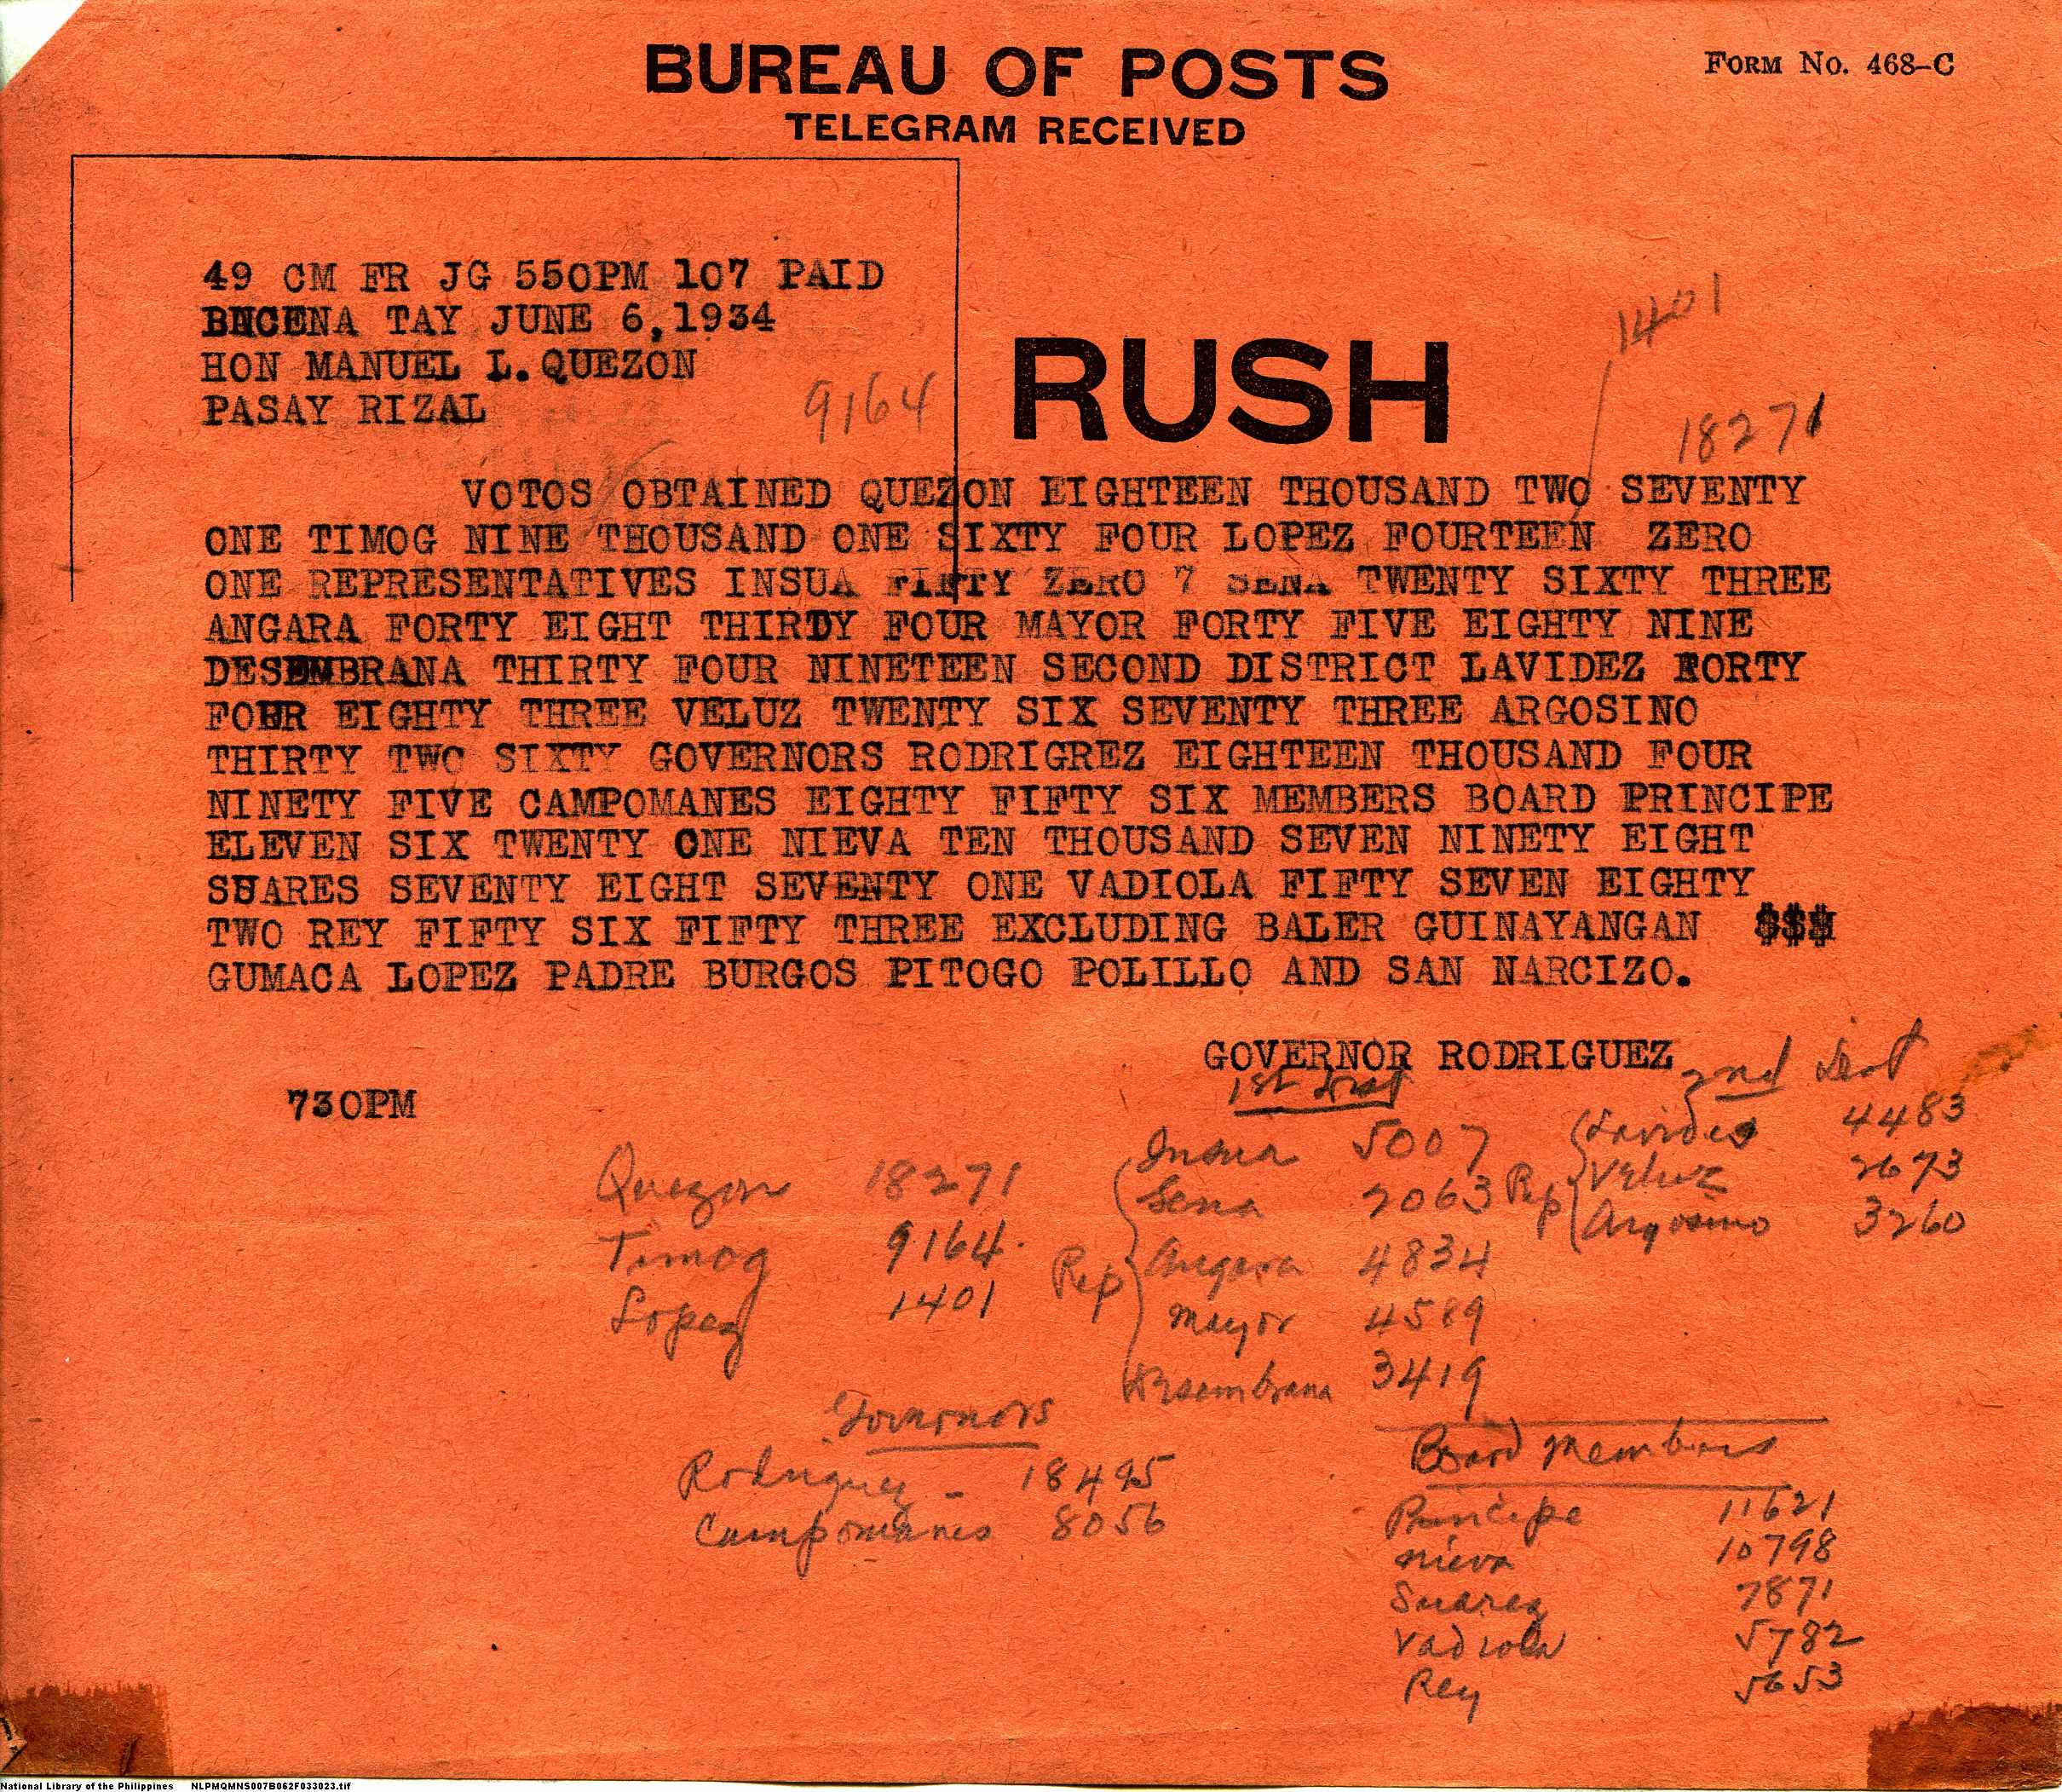 BUREAU OF POSTS
TELEGRAM RECEIVED
FORM NO. 468-C
49 CM FR JG 550PM 107 PAID
TAY JUNE 6, 1934
HON MANUEL L. QUEZON
PASAY RIZAL
RUSH
1401
9164
18271
VOTOS OBTAINED QUEZON EIGHTEEN THOUSAND TWO SEVENTY
ONE TIMOG NINE THOUSAND ONE SIXTY FOUR LOPEZ FOURTEEN ZERO
ONE REPRESENTATIVES INSUA FIFTY ZERO 7 SENA TWENTY SIXTY THREE
ANGARA FORTY EIGHT THIRTY FOUR MAYOR FORTY FIVE EIGHTY NINE
DESEMBRANA THIRTY FOUR NINETEEN SECOND DISTRICT LAVIDEZ FORTY
FOUR EIGHTY THREE VELUZ TWENTY SIX SEVENTY THREE ARGOSINO
THIRTY TWO SIXTY GOVERNORS RODRIGREZ EIGHTEEN THOUSAND FOUR
NINETY FIVE CAMPOMANES EIGHTY FIFTY SIX MEMBERS BOARD PRINCIPE
ELEVEN SIX TWENTY ONE NIEVA TEN THOUSAND SEVEN NINETY EIGHT
SUARES SEVENTY EIGHT SEVENTY ONE VADIOLA FIFTY SEVEN EIGHTY
TWO REY FIFTY SIX FIFTY THREE EXCLUDING BALER GUINAYANGAN
GUMACA LOPEZ PADRE BURGOS PITOGO POLILLO AND SAN NARCIZO.
GOVERNOR RODRIGUEZ
730PM
Quezon 18271
Timog 9164
Lopez 1401
1st Dist
Rep
Insua 5007
Sena 2063
Angara 4834
Mayor 4589
Desembrana 3419
2nd Dist
Rep
Lavides 4483
Veluz 2673
Argosino 3260
Governors
Rodriguez - 18495
Campomanes 8056
Board Members
Principe 11621
Nieva 10798
Suarez 7871
Vadiola 5782
Rey 5653
National Library of the Philippines NLPMQMNS007B062F033023.tif